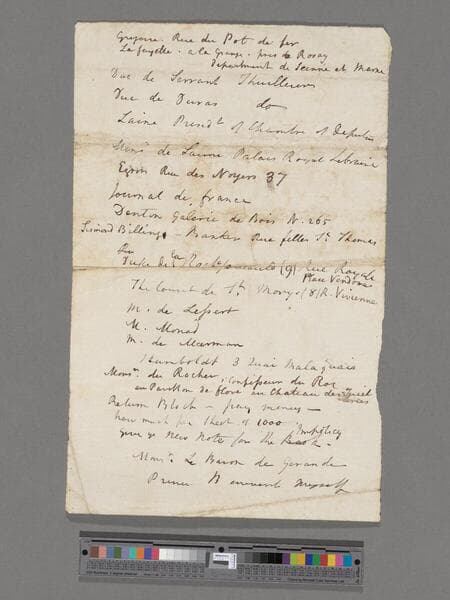 Gregoire. Rue du Pot de fer
La fayette - a la Grange - pres de Rosay
Department de Seinne et Marne
Duc de Serrant Thuilleries
Duc de Duras do
Laine Presdt of Chambre of Deputies
de Palais Royal Libraire
Egron Rue des Noyers 37
Journal de france
Denton Galerie de Bois N. 265
Billing - Banker Rue filles St. Thomas
Duke de la Rochefoucault (9) Rue Royale
Place Vendome
The Count de St. Morys (8) R. Vivienne
M. de Lessert
M. Monod
M. de
Humboldt 3 Quai Malaquais
Monsr. du Rocher, Confesseur du Roi
au Pavillon de flore au Chateau des Tuileries
Return Block - pay money -
how much per sheet of 1000
give a New Note for the Book -
Monsr. Le Baron de Gerando
Prince